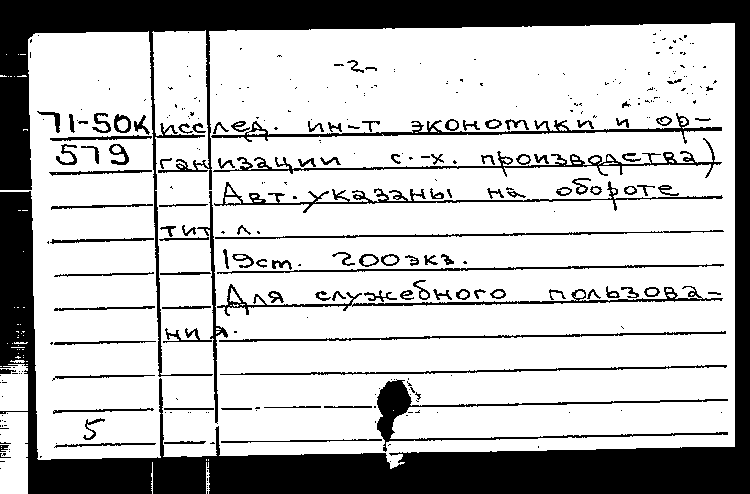 -2-
71-50к исслед. ин-т экономики и ор-
579 ганизации с.-х. производства)
Авт. указаны на обороте
тит. л.
19см. 200экз.
Для служебного пользова-
ния.
5